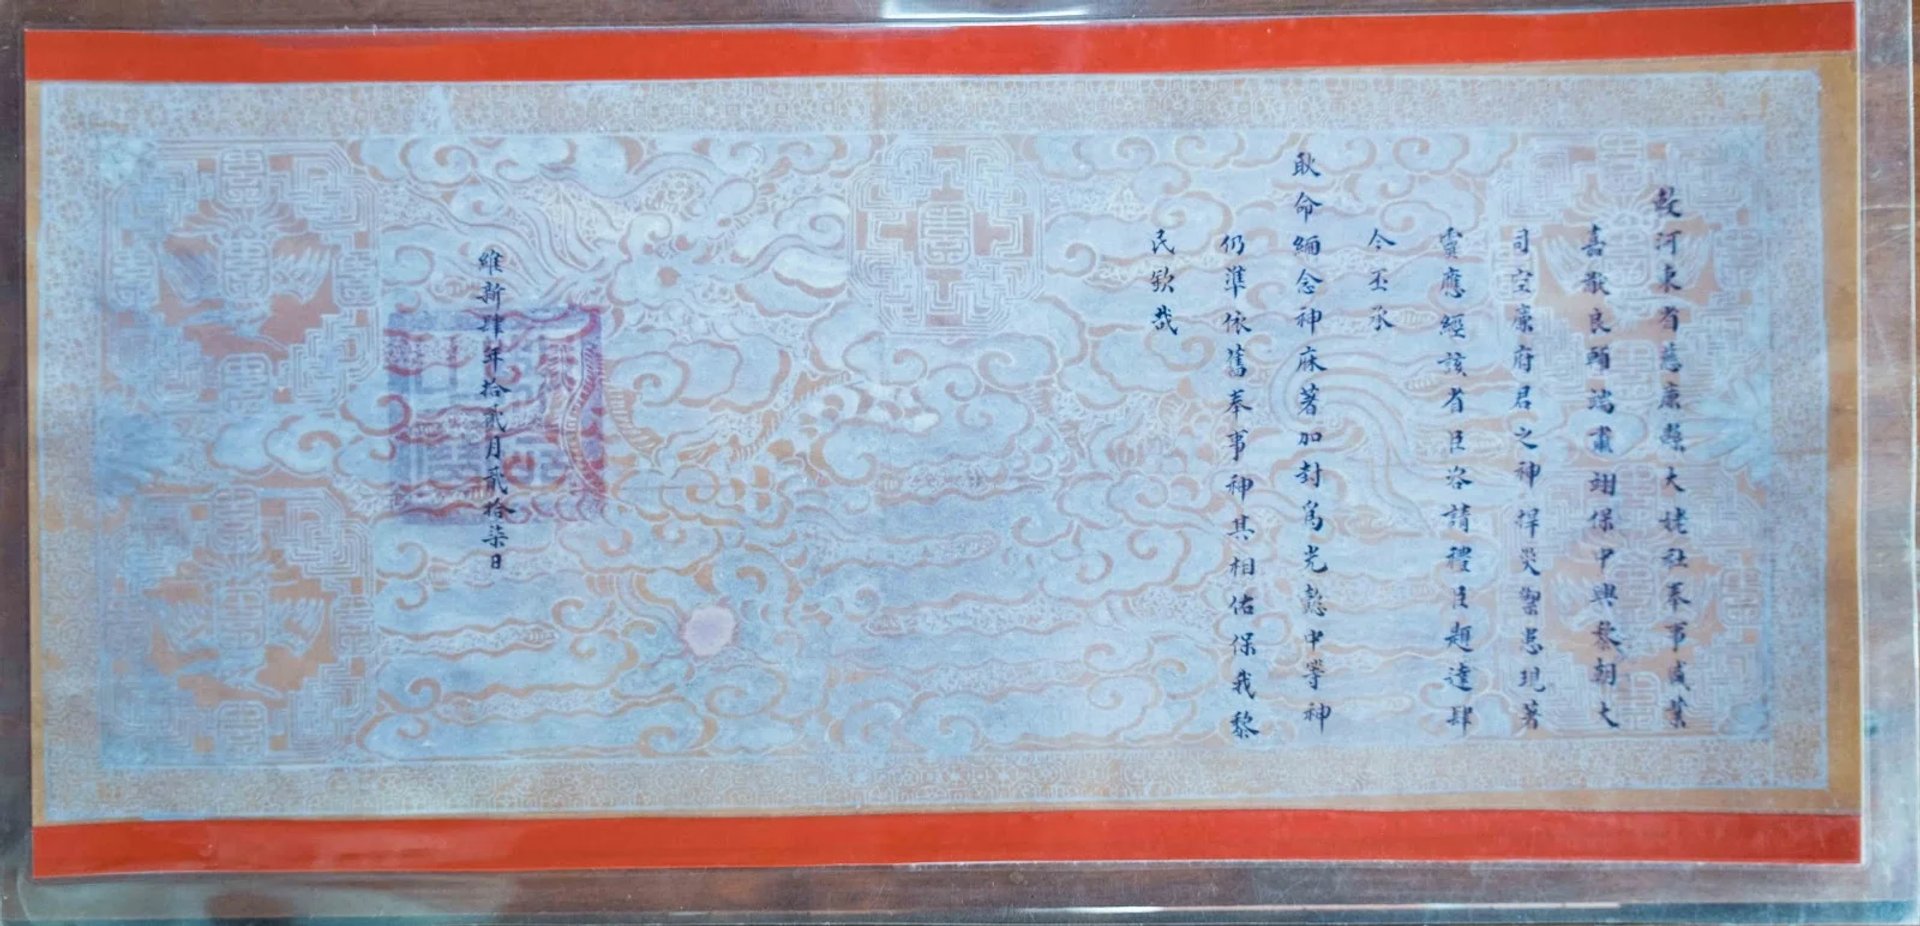 敕河東省慈廉縣大姥社奉事盛業
嘉猷良頤端肅翊保中興黎朝大
司空廉府君之神捍災禦患現著
靈應經該省臣咨請禮臣題達肆
今丕承
耿命緬念神庥著加封爲光懿中等神
仍準依舊奉事神其相佑保我黎
民欽哉
維新肆年拾貳月貳拾柒日